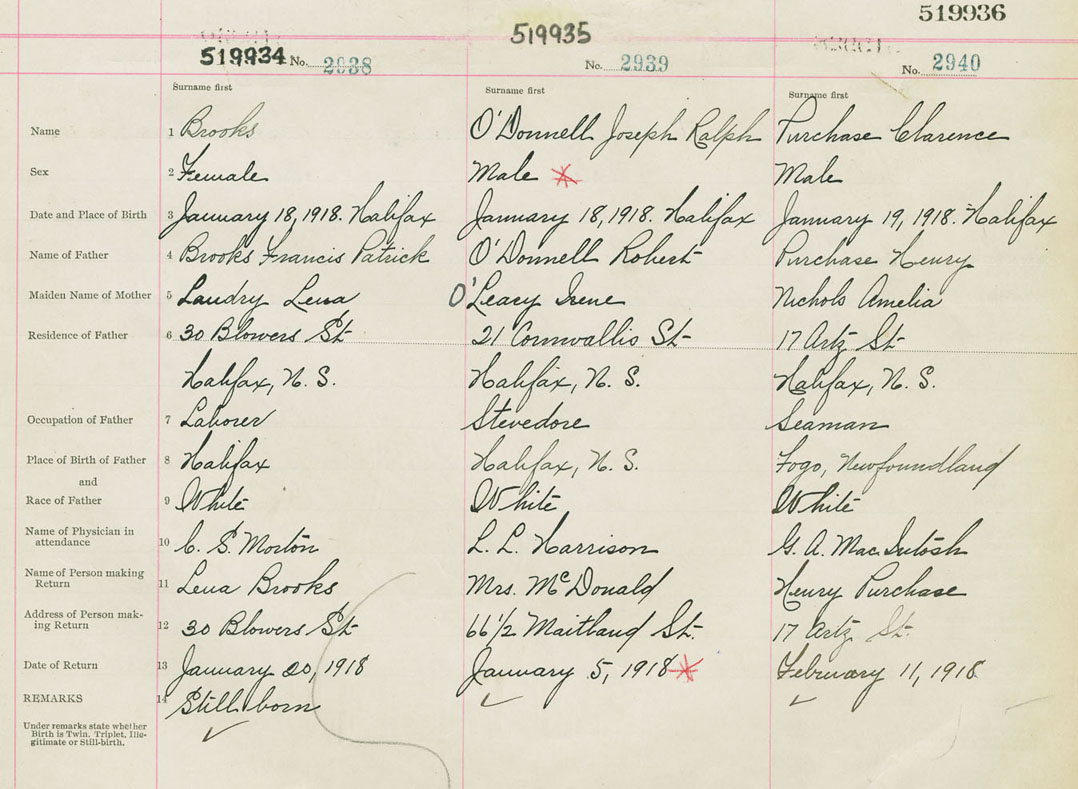 519936
519935
519934 No. 2938
No. 2939
No. 2940
Surname first
Surname first
Surname first
Name 1 Brooks O'Donnell Joseph Ralph Purchase Clarence
Sex 2 Female Male * Male
Date and Place of Birth 3 January 18, 1918. Halifax January 18, 1918. Halifax January 19, 1918. Halifax
Name of Father 4 Brooks Francis Patrick O'Donnell Robert Purchase Henry
Maiden Name of Mother 5 Landry Lena O'Leary Irene Nichols Amelia
Residence of Father 6 30 Blowers St 21 Cornwallis St 17 Artz St
Halifax, N. S. Halifax, N. S. Halifax, N. S.
Occupation of Father 7 Laborer Stevedore Seaman
Place of Birth of Father 8 Halifax Halifax, N. S. Fogo, Newfoundland
and
Race of Father 9 White White White
Name of Physician in
attendance 10 C. S. Morton L. L. Harrison G. A. MacIntosh
Name of Person making
Return 11 Lena Brooks Mrs. McDonald Henry Purchase
Address of Person mak-
ing Return 12 30 Blowers St 66 1/2 Maitland St. 17 Artz St.
Date of Return 13 January 20, 1918 January 5, 1918 * February 11, 1918
REMARKS 14 Still born
Under remarks state whether
Birth is Twin, Triplet, Ille-
gitimate or Still-birth.